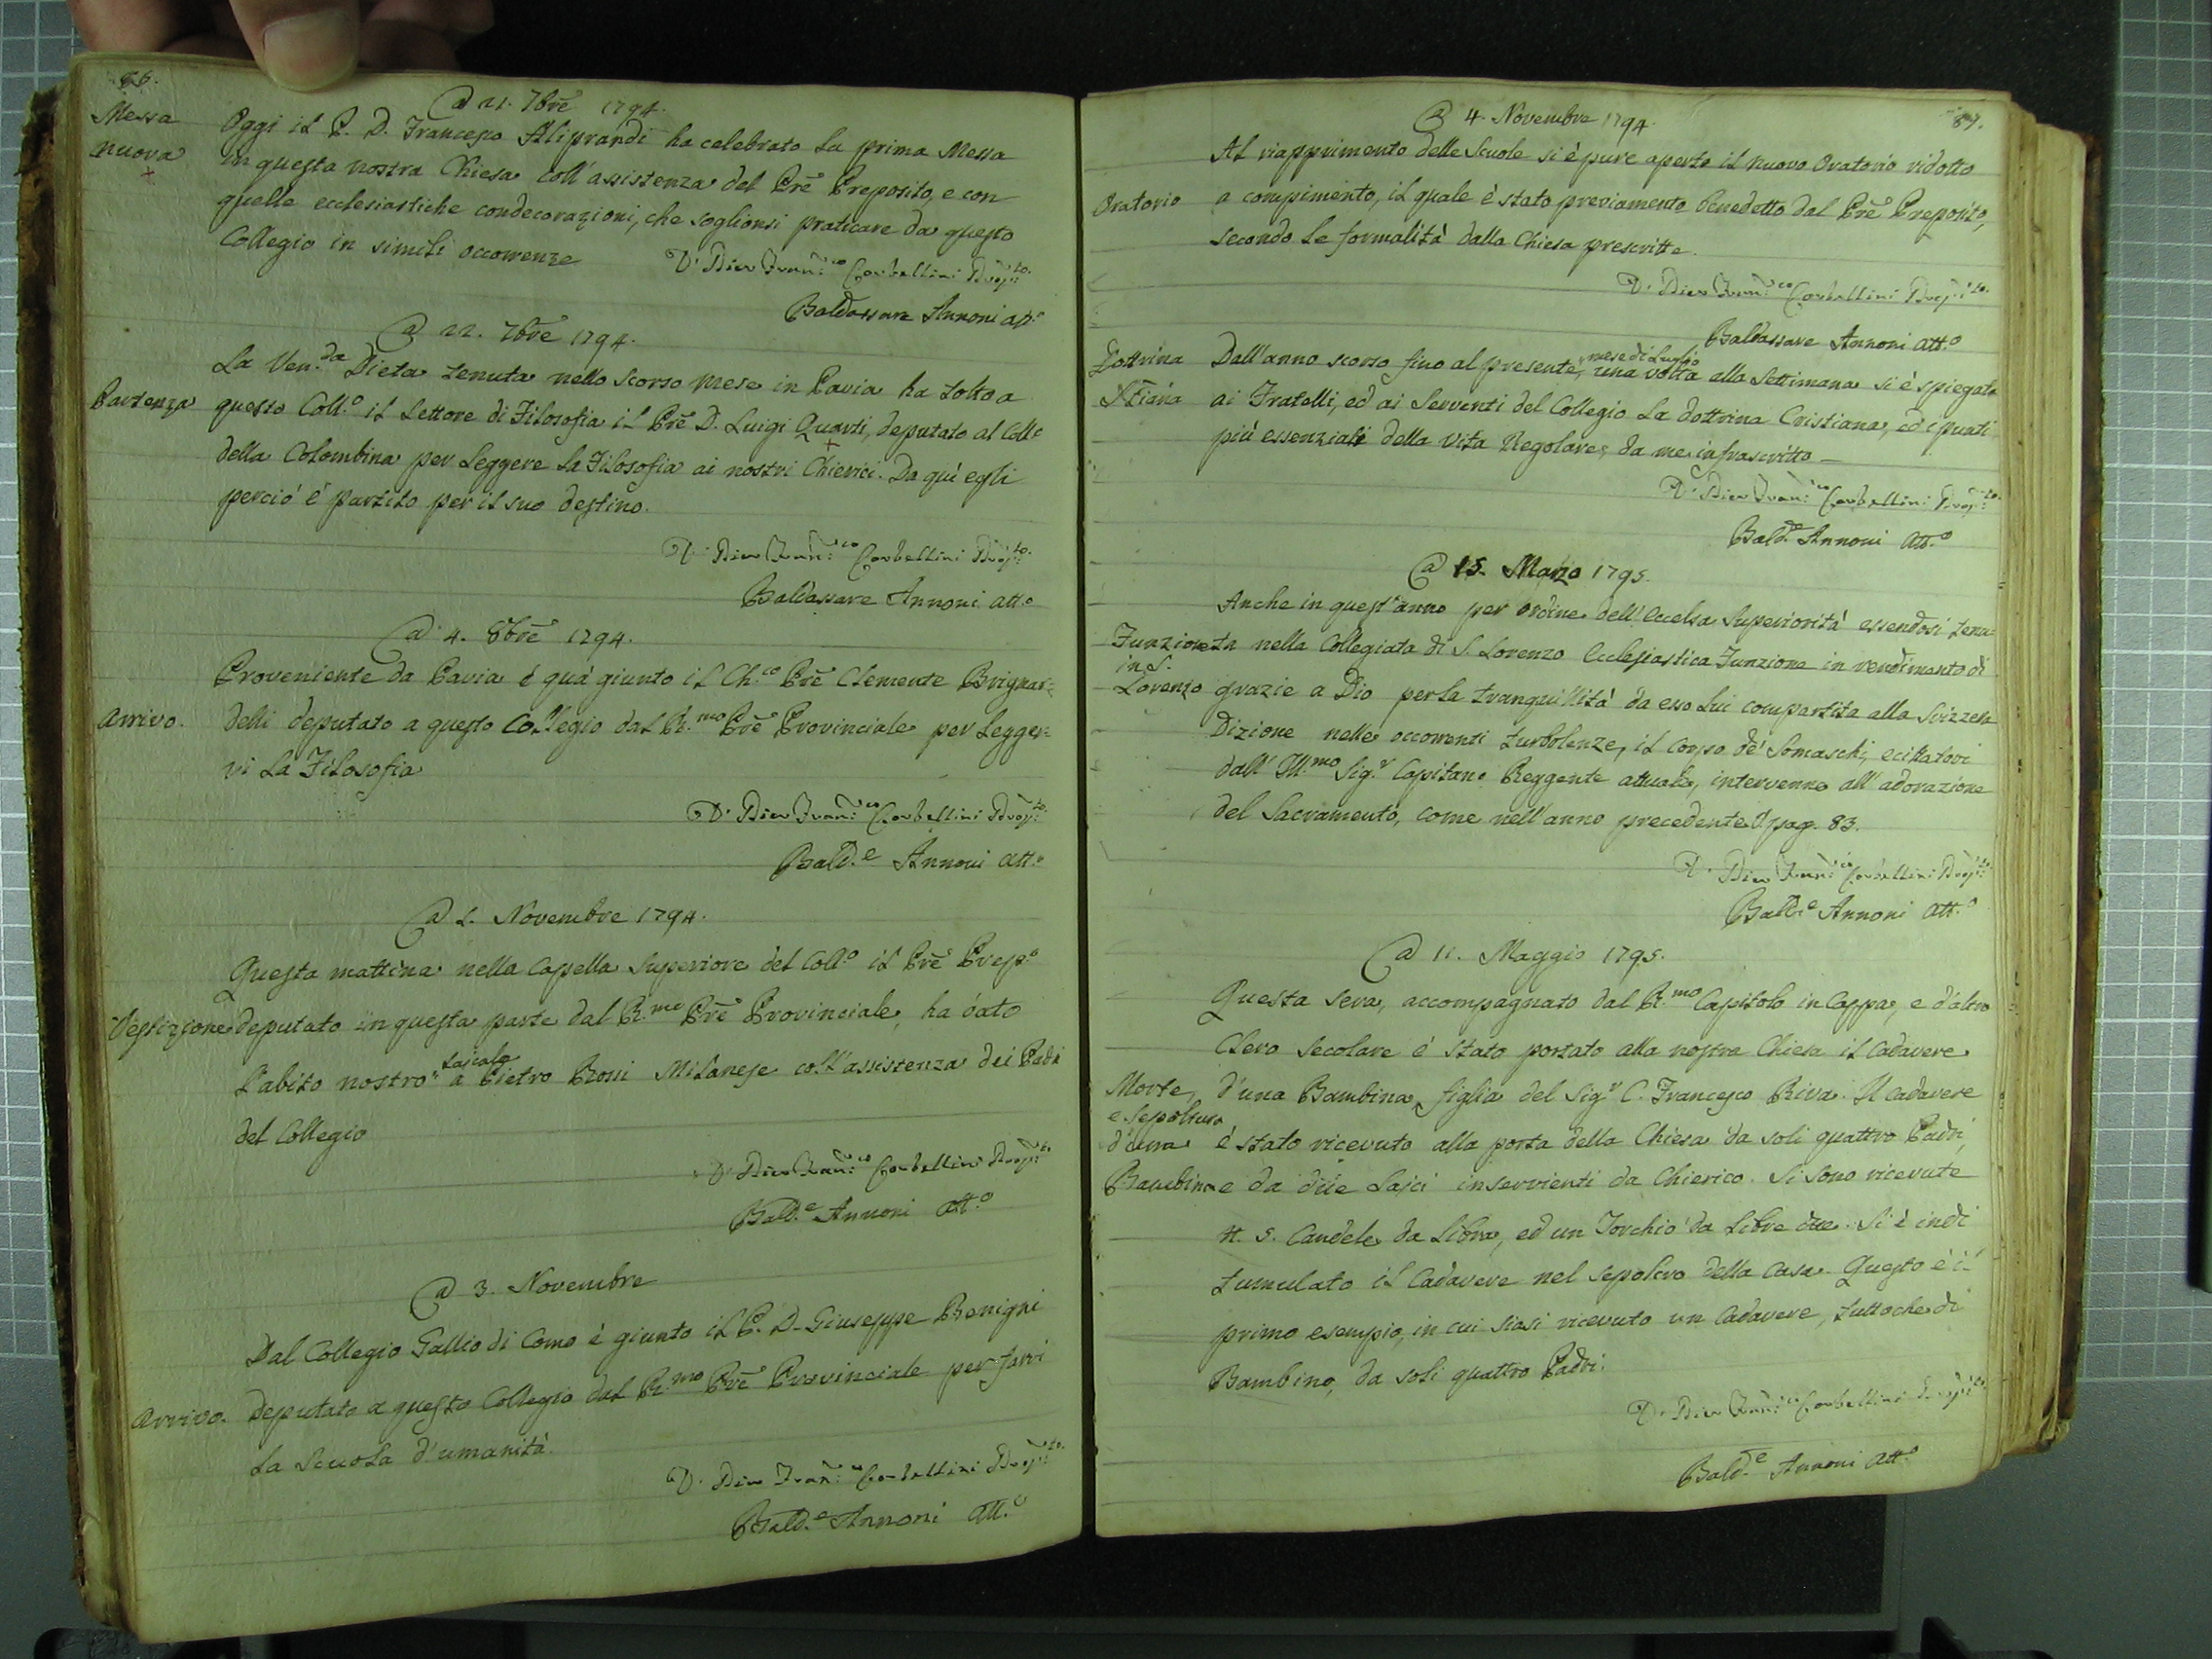 86.
@ 21. 7bre 1794.
Messa
nuova
Oggi il P. D. Francesco Aliprandi ha celebrato la prima Messa
in questa nostra Chiesa coll'assistenza del Prē Preposito, e con
quelle ecclesiastiche condecorazioni, che soglionsi praticare da questo
Collegio in simili occorrenze
D. Pier Fran:co Corbellini Prop:to
Baldassare Annoni att.o
@ 22. 7bre 1794.
Partenza
La Ven.da Dieta tenuta nello scorso mese in Pavia ha tolto a
questo Coll.o il Lettore di Filosofia il Prē D. Luigi Quarti, deputato al Coll.o
della Colombina per leggere la Filosofia ai nostri Chierici. Da quì egli
perciò è partito per il suo destino.
D. Pier Fran:co Corbellini Prop:to
Baldassare Annoni att.o
@ 4. 8bre 1794.
Arrivo.
Proveniente da Pavia è quà giunto il Ch.co Prē Clemente Brignar=
delli deputato a questo Collegio dal R.mo Prē Provinciale per legger=
vi la Filosofia
D. Pier Fran:co Corbellini Prop:to
Bald.e Annoni att.o
@ 1. Novembre 1794.
Vestizione
Questa mattina nella Capella superiore del Coll.o il Prē Prep.o
deputato in questa parte dal R.mo Prē Provinciale, ha dato
l'abito nostro laicale a Pietro Rossi Milanese coll'assistenza dei Padri
del Collegio
D. Pier Fran:co Corbellini Prop:to
Bald.e Annoni att.o
@ 3. Novembre
Arrivo.
Dal Collegio Gallio di Como è giunto il P. D. Giuseppe Benigni
deputato a questo Collegio dal R.mo Prē Provinciale per farvi
la scuola d'umanità.
D. Pier Fran:co Corbellini Prop:to
Bald.e Annoni att.o
87.
@ 4. Novembre 1794.
Oratorio
Al riapprimento delle Scuole si è pure aperto il nuovo Oratorio ridotto
a compimento, il quale è stato previamente benedetto dal Prē Preposito,
secondo le formalità dalla Chiesa prescritte.
D. Pier Fran:co Corbellini Prop:to
Baldassare Annoni att.o
Dottrina
Xtiana
Dall'anno scorso fino al presente mese di Luglio, una volta alla settimana si è spiegata
ai Fratelli, ed ai Serventi del Collegio la dottrina Cristiana, ed i punti
più essenziali della vita Regolare, da me infrascritto
D. Pier Fran:co Corbellini Prop:to
Bald.e Annoni att.o
@ 15. Marzo 1795.
Funzione
in S.
Lorenzo
Anche in quest'anno per ordine dell'Eccelsa Superiorità essendosi tenu=
ta nella Collegiata di S. Lorenzo Ecclesiastica Funzione in rendimento di
grazie a Dio per la tranquillità da esso lui compartita alla Svizzera
Dizione nelle occorrenti turbolenze, il Corpo de' Somaschi, ecittatovi
dall' Ill.mo Sig.r Capitano Reggente attuale, intervenne all'adorazione
del Sacramento, come nell'anno precedente V. pag. 83.
D. Pier Fran:co Corbellini Prop:to
Bald.e Annoni att.o
@ 11. Maggio 1795.
Morte,
e sepoltura
d'una
Bambina
Questa sera, accompagnato dal R.mo Capitolo in Cappa, e d'altro
Clero secolare è stato portato alla nostra Chiesa il cadavere
d'una Bambina, figlia del Sig.r C. Francesco Riva. Il cadavere
è stato ricevuto alla porta della Chiesa da soli quattro Padri,
e da due Laici inservienti da Chierico. Si sono ricevute
N. 5. Candele da libra, ed un Torchio da libre due. Si è indi
tumulato il Cadavere nel sepolcro della Casa. Questo è il
primo esempio, in cui siasi ricevuto un Cadavere, tuttoche di
Bambino, da soli quattro Padri.
D. Pier Fran:co Corbellini Prop:to
Bald.e Annoni att.o